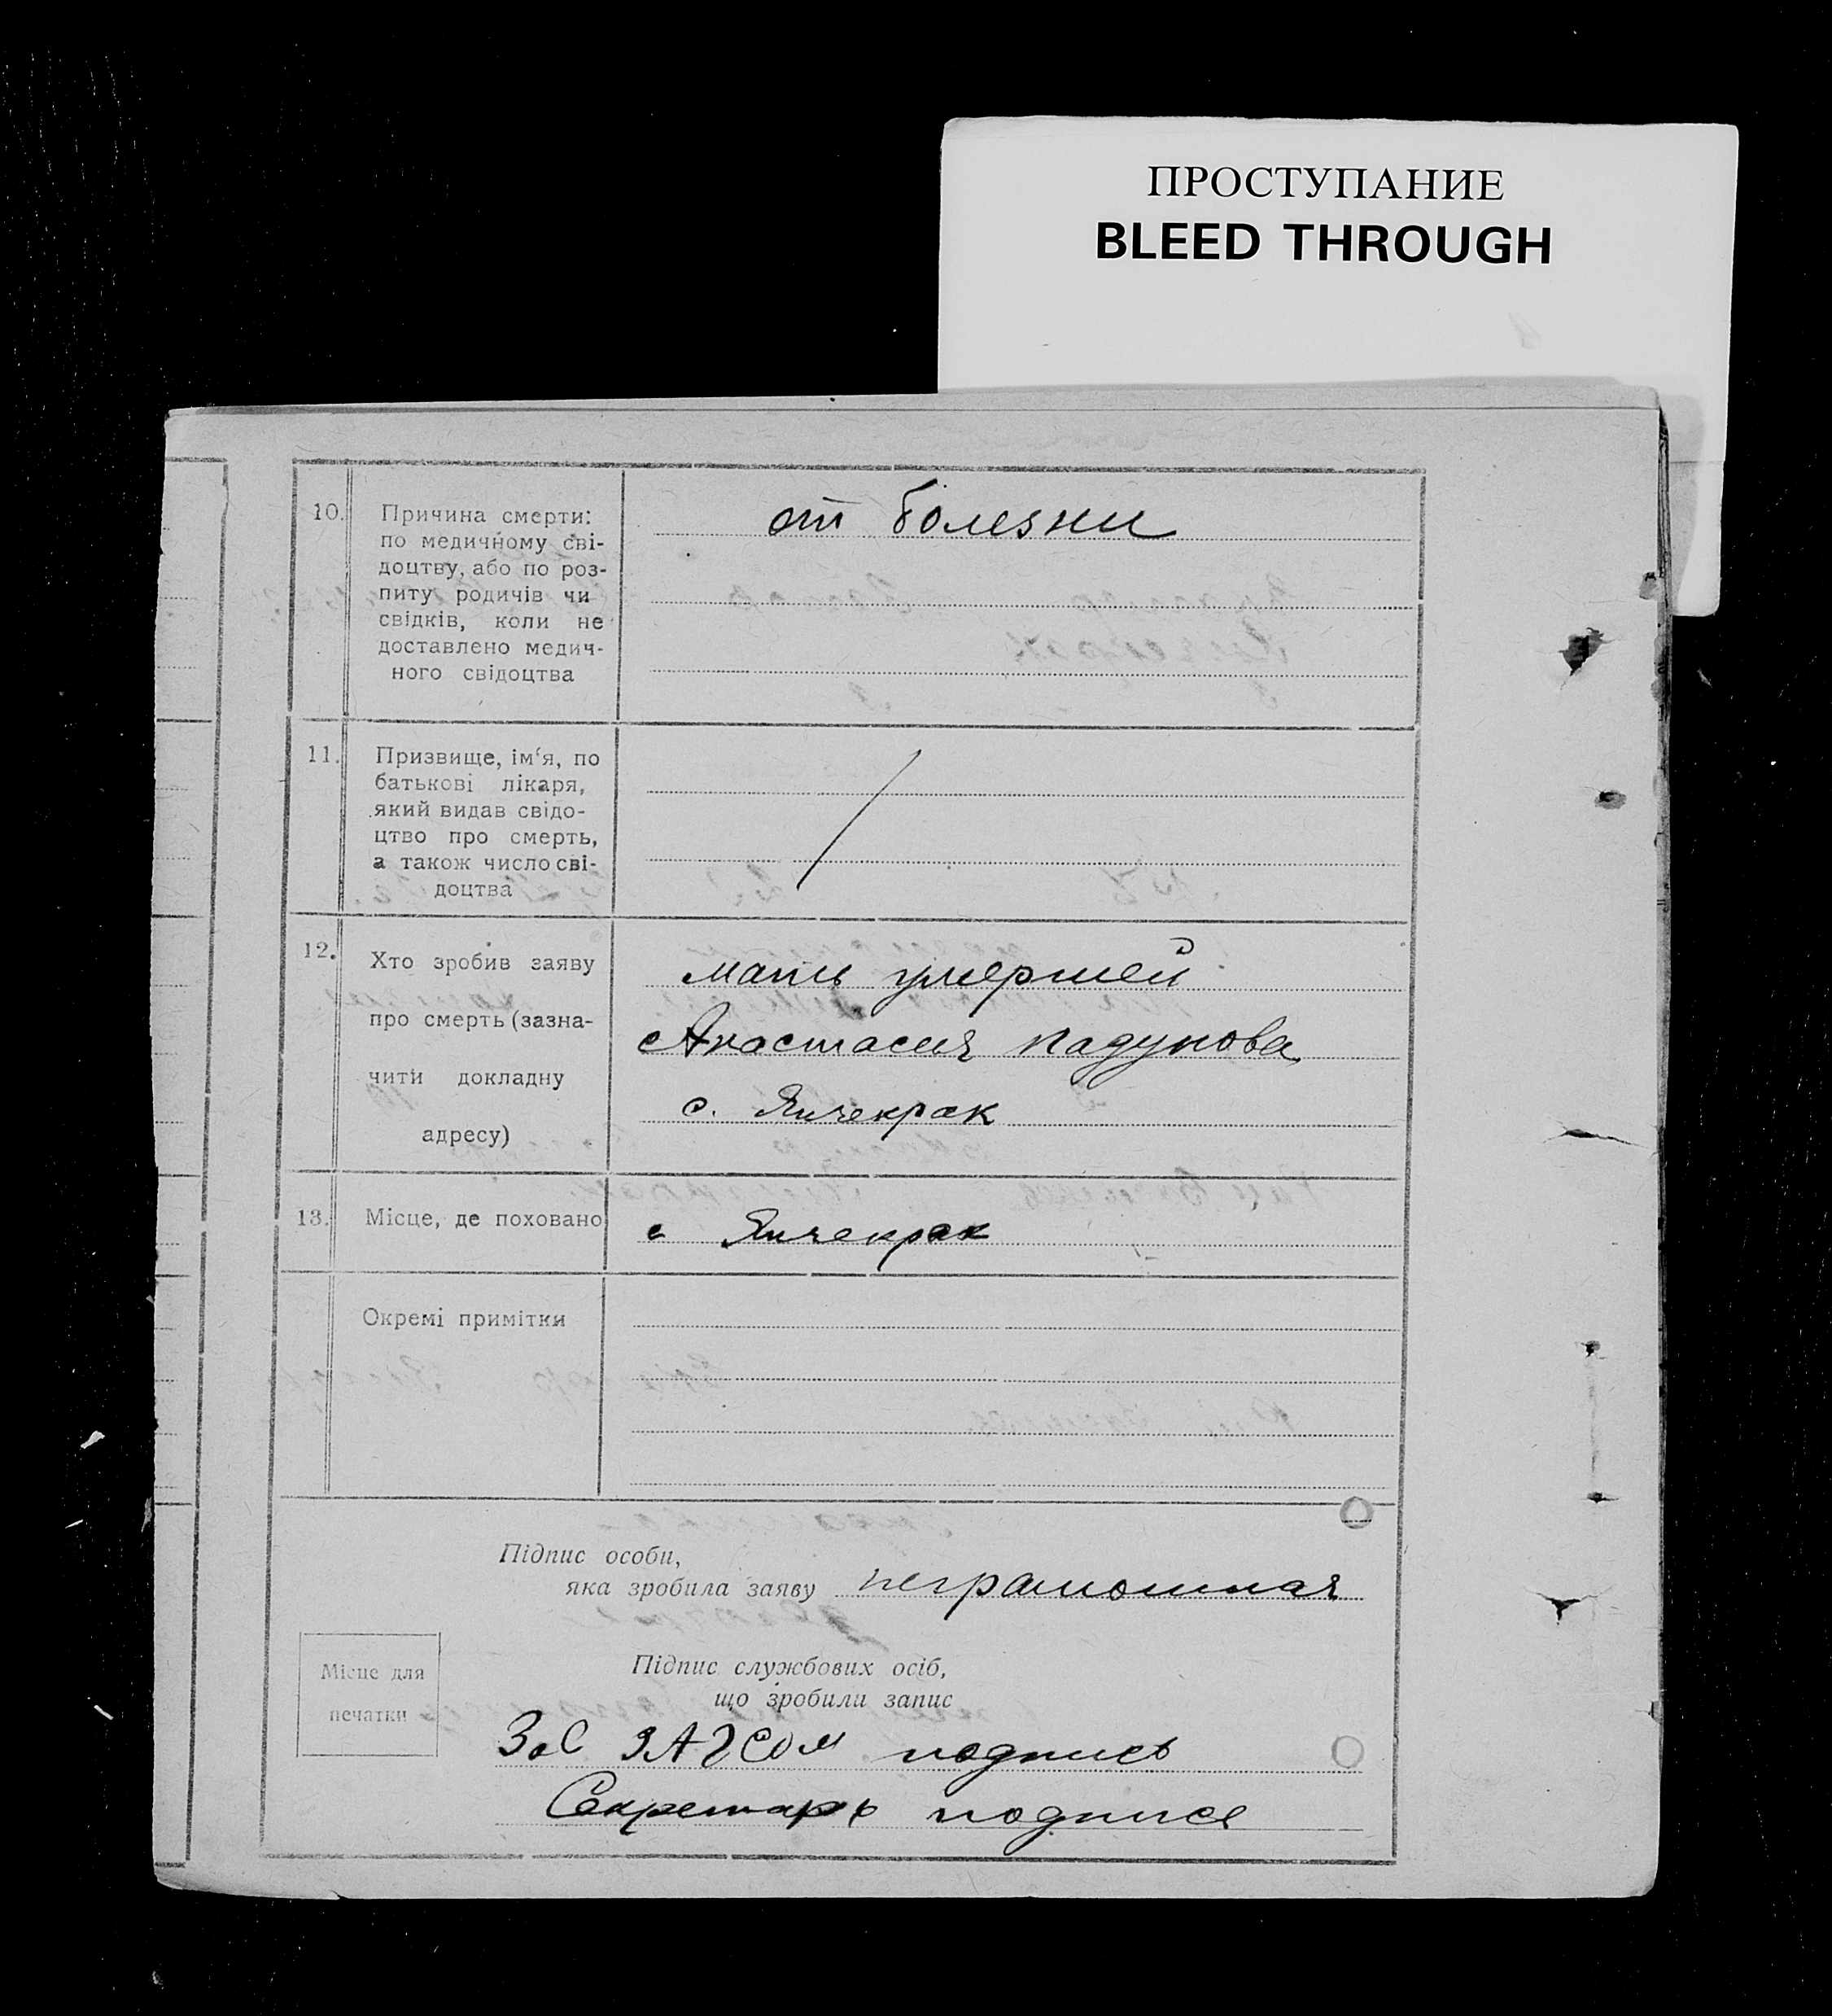 ПРОСТУПАНИЕ
BLEED THROUGH
10.
Причина смерти:
по медичному сві-
доцтву, або по роз-
питу родичів чи
свідків, коли не
доставлено медич-
ного свідоцтва
от болезни
11.
Призвище, ім‘я, по
батькові лікаря,
який видав свідо-
цтво про смерть,
а також число сві-
доцтва
12.
Хто зробив заяву
про смерть (зазна-
чити докладну
адресу)
мать умершей
Анастасия Падунова
с. Янчекрак
13.
Місце, де поховано
с Янчекрак
Окремі примітки
Підпис особи,
яка зробила заяву неграмотная
Місце для
печатки
Підпис службових осіб,
що зробили запис
Заc ЗАГСом подпись
Секретарь подпись